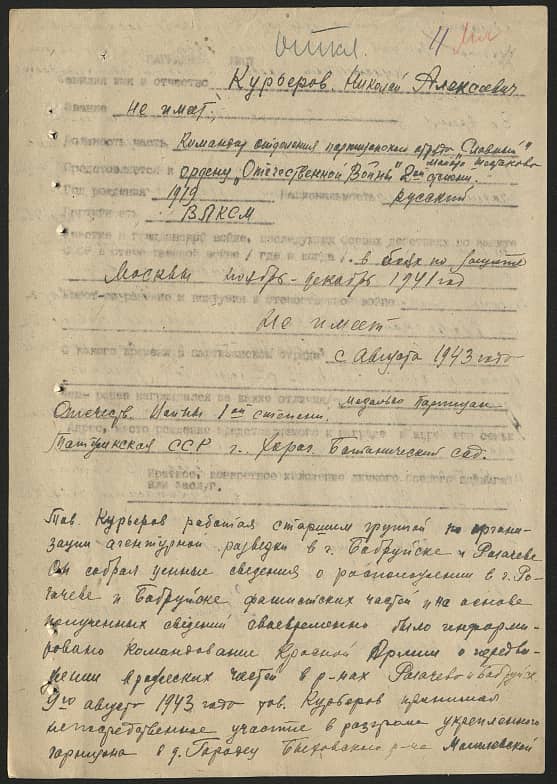 откл.
11
НАГРАДНОЙ ЛИСТ
Фамилия имя и отчество Курьеров Николай Алексеевич
Звание не имеет.
Должность часть Командир отделения партизанского отряда "Славный"
майора Шестакова
Представляется к ордену "Отечественной Войны" 2ой степени.
Год рождения 1919 Национальность русский
Партийность ВЛКСМ
Участие в гражданской войне, последующих боевых действиях по защите
СССР и отечественной войне / где и когда / в боях по защите
Москвы ноябрь-декабрь 1941 год
Имеет ранение и контузии в отечественной войне
Не имеет
С какого времени в партизанском отряде с августа 1943 года
ранее награждался за какие отличия медалью Партизан
Отечеств. Войны 1ой степени.
Адрес, место
СССР г. Ботанический сад.
Краткое, конкретное изложение личного боевого подвига
или заслуг.
Тов. Курьеров работая старшим группой по органи-
зации агентурной разведки в г. Бобруйске и Рагачеве
Он собрал ценные сведения о расположении в г. Ро-
гачеве и Бобруйске фашистских частей и на основе
полученных сведений своевременно было информи-
ровано командование Красной Армии о передви-
жении вражеских частей в р-нах Рагачево и Бобруйск.
9го августа 1943 года тов. Курьеров принимал
непосредственное участие в разгроме укрепленного
гарнизона в д. Городец Быховского р-на Могилевской